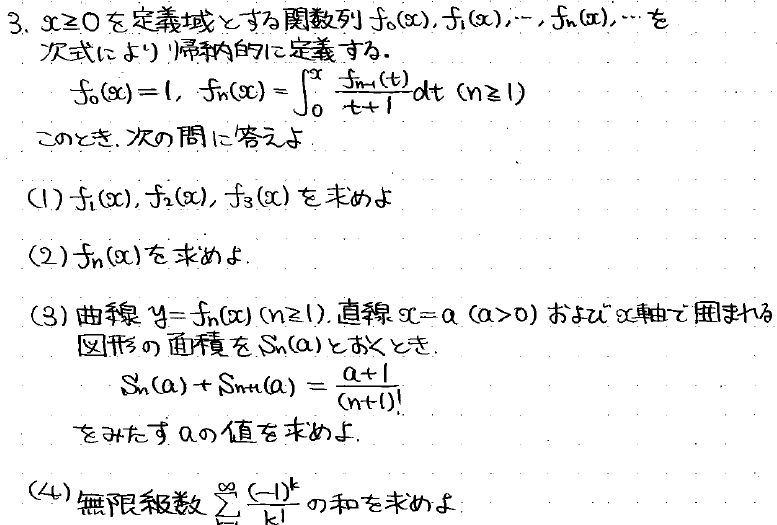 3. x≥0 を定義域とする関数列 f₀(x), f₁(x), …, fₙ(x), … を
次式により帰納的に定義する.
f₀(x)=1, fₙ(x)=∫₀ˣ fₙ₋₁(t)/(t+1) dt (n≥1)
このとき、次の問に答えよ.
(1) f₁(x), f₂(x), f₃(x) を求めよ
(2) fₙ(x) を求めよ.
(3) 曲線 y=fₙ(x) (n≥1), 直線 x=a (a>0) および x軸で囲まれる
図形の面積を Sₙ(a) とおくとき,
Sₙ(a)+Sₙ₊₁(a) = (a+1)/(n+1)!
をみたす a の値を求めよ.
(4) 無限級数 Σ^∞ (-1)ᵏ/k! の和を求めよ